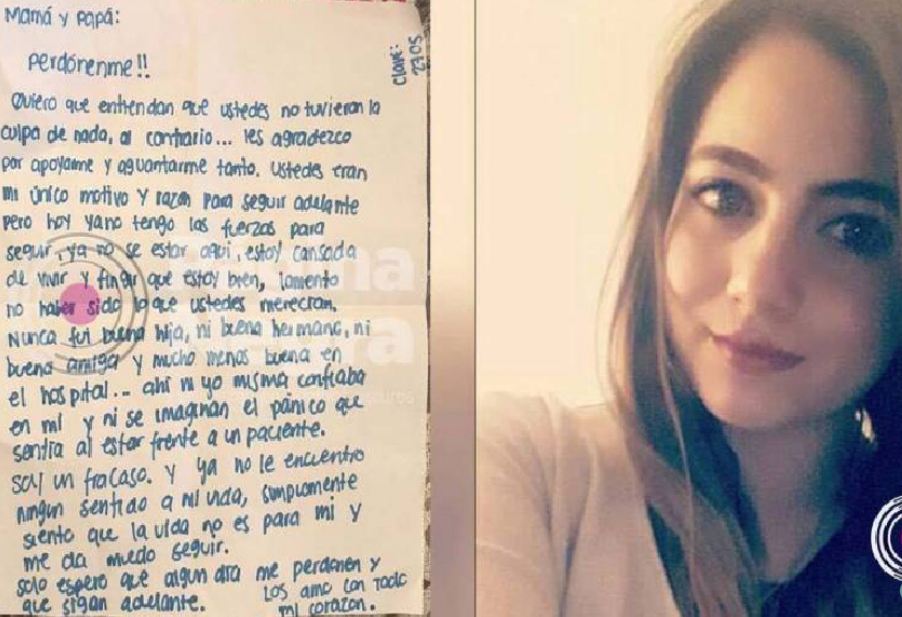 Mamá y Papá:
Perdónenme!!
Clave:
2705
Quiero que entiendan que ustedes no tuvieron la
culpa de nada, al contrario... les agradezco
por apoyarme y aguantarme tanto. Ustedes eran
mi único motivo y razón para seguir adelante
pero hoy ya no tengo las fuerzas para
seguir, ya no se estar aquí, estoy cansada
de vivir y fingir que estoy bien, lamento
no haber sido lo que ustedes merecían.
Nunca fui buena hija, ni buena hermana, ni
buena amiga y mucho menos buena en
el hospital... ahí ni yo misma confiaba
en mí y ni se imaginan el pánico que
sentía al estar frente a un paciente.
Soy un fracaso. Y ya no le encuentro
ningun sentido a mi vida, simplemente
siento que la vida no es para mi y
me da miedo seguir.
Solo espero que algun día me perdonen y
que sigan adelante.
Los amo con todo
mi corazon.